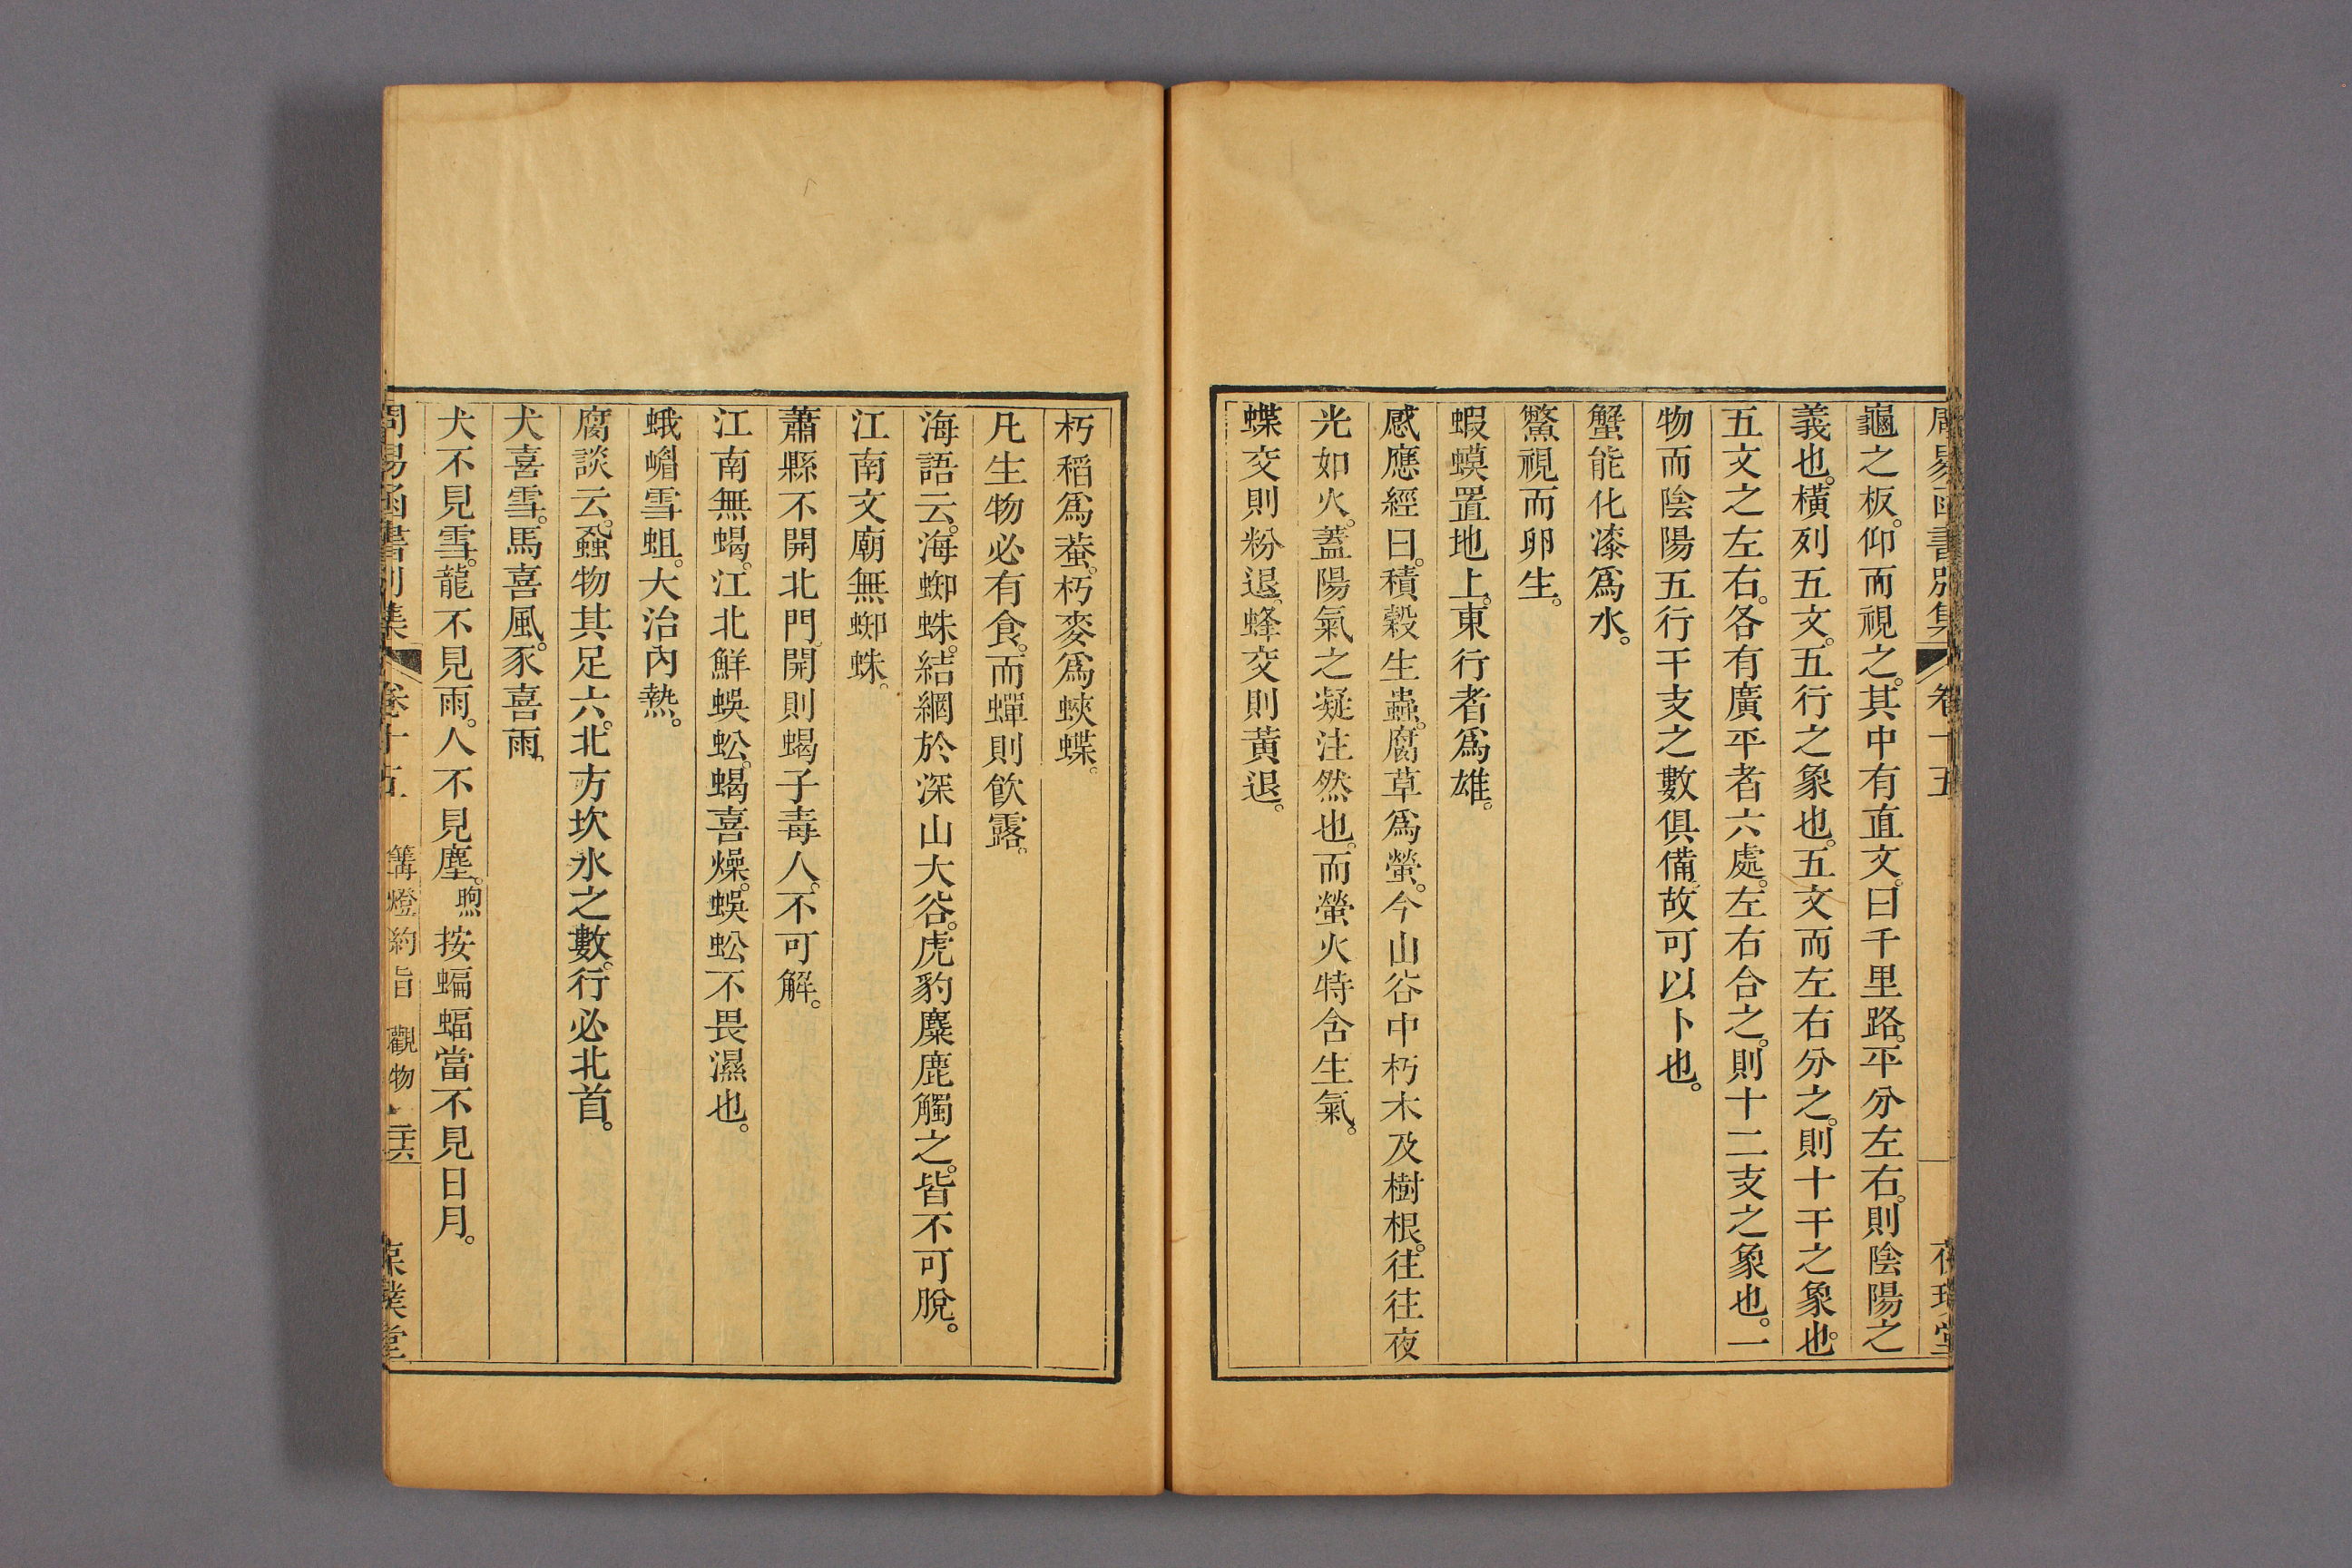 周易函書別集 卷十五 葆璞堂
龜之板。仰而視之。其中有直文。曰千里路。平分左右。則陰陽之
義也。橫列五文。五行之象也。五文而左右分之。則十干之象也。
五文之左右。各有廣平者六處。左右合之。則十二支之象也。一
物而陰陽五行干支之數俱備。故可以卜也。
蟹能化漆爲水。
鱉視而卵生。
蝦蟆置地上。東行者爲雄。
感應經曰。積穀生蟲。腐草爲螢。今山谷中朽木及樹根。往往夜
光如火。蓋陽氣之凝注然也。而螢火特含生氣。
蝶交則粉退。蜂交則黃退。
朽稻爲蛬。朽麥爲蛺蝶。
凡生物必有食。而蟬則飲露。
海語云。海蜘蛛。結網於深山大谷。虎豹麋鹿觸之。皆不可脫。
江南文廟無蜘蛛。
蕭縣不開北門。開則蝎子毒人。不可解。
江南無蝎。江北鮮蜈蚣。蝎喜燥。蜈蚣不畏濕也。
蛾嵋雪蛆。大治內熱。
腐談云。蝨物其足六。北方坎水之數。行必北首。
犬喜雪。馬喜風。豕喜雨。
犬不見雪。龍不見雨。人不見塵。煦按蝙蝠當不見日月。
周易函書別集 卷十五 篝燈約旨 觀物 二十六 葆璞堂